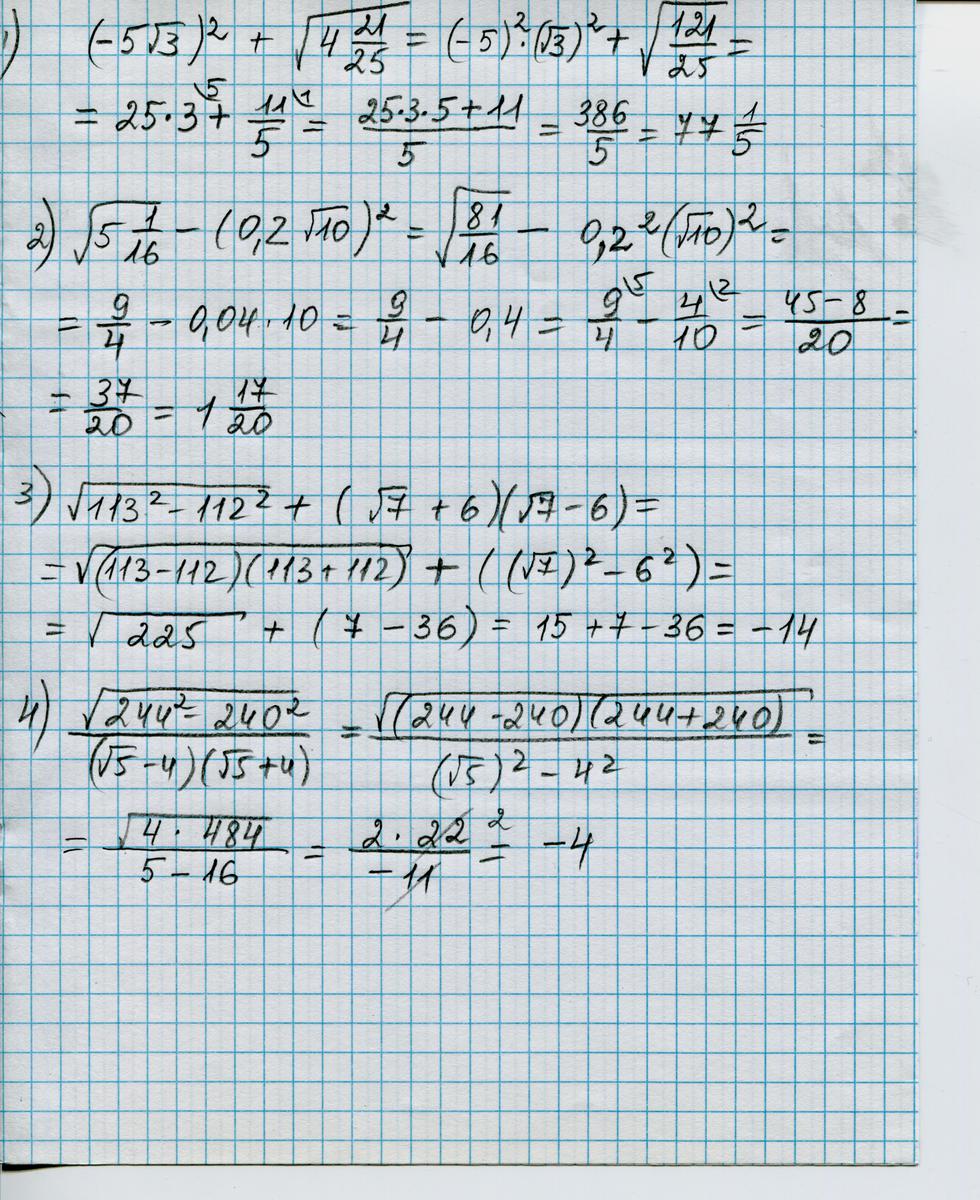 1) (-5√3)² + √(4 21/25) = (-5)²·(√3)² + √(121/25) =
= 25·3\5 + 11/5\1 = (25·3·5+11)/5 = 386/5 = 77 1/5
2) √(5 1/16) - (0,2√10)² = √(81/16) - 0,2²(√10)² =
= 9/4 - 0,04·10 = 9/4 - 0,4 = 9/4\5 - 4/10\2 = (45-8)/20 =
= 37/20 = 1 17/20
3) √(113²-112²) + (√7+6)(√7-6) =
= √((113-112)(113+112)) + ((√7)²-6²) =
= √225 + (7-36) = 15+7-36 = -14
4) √(244²-240²)/((√5-4)(√5+4)) = √((244-240)(244+240))/((√5)²-4²) =
= √(4·484)/(5-16) = 2·22/(-11) 2 = -4